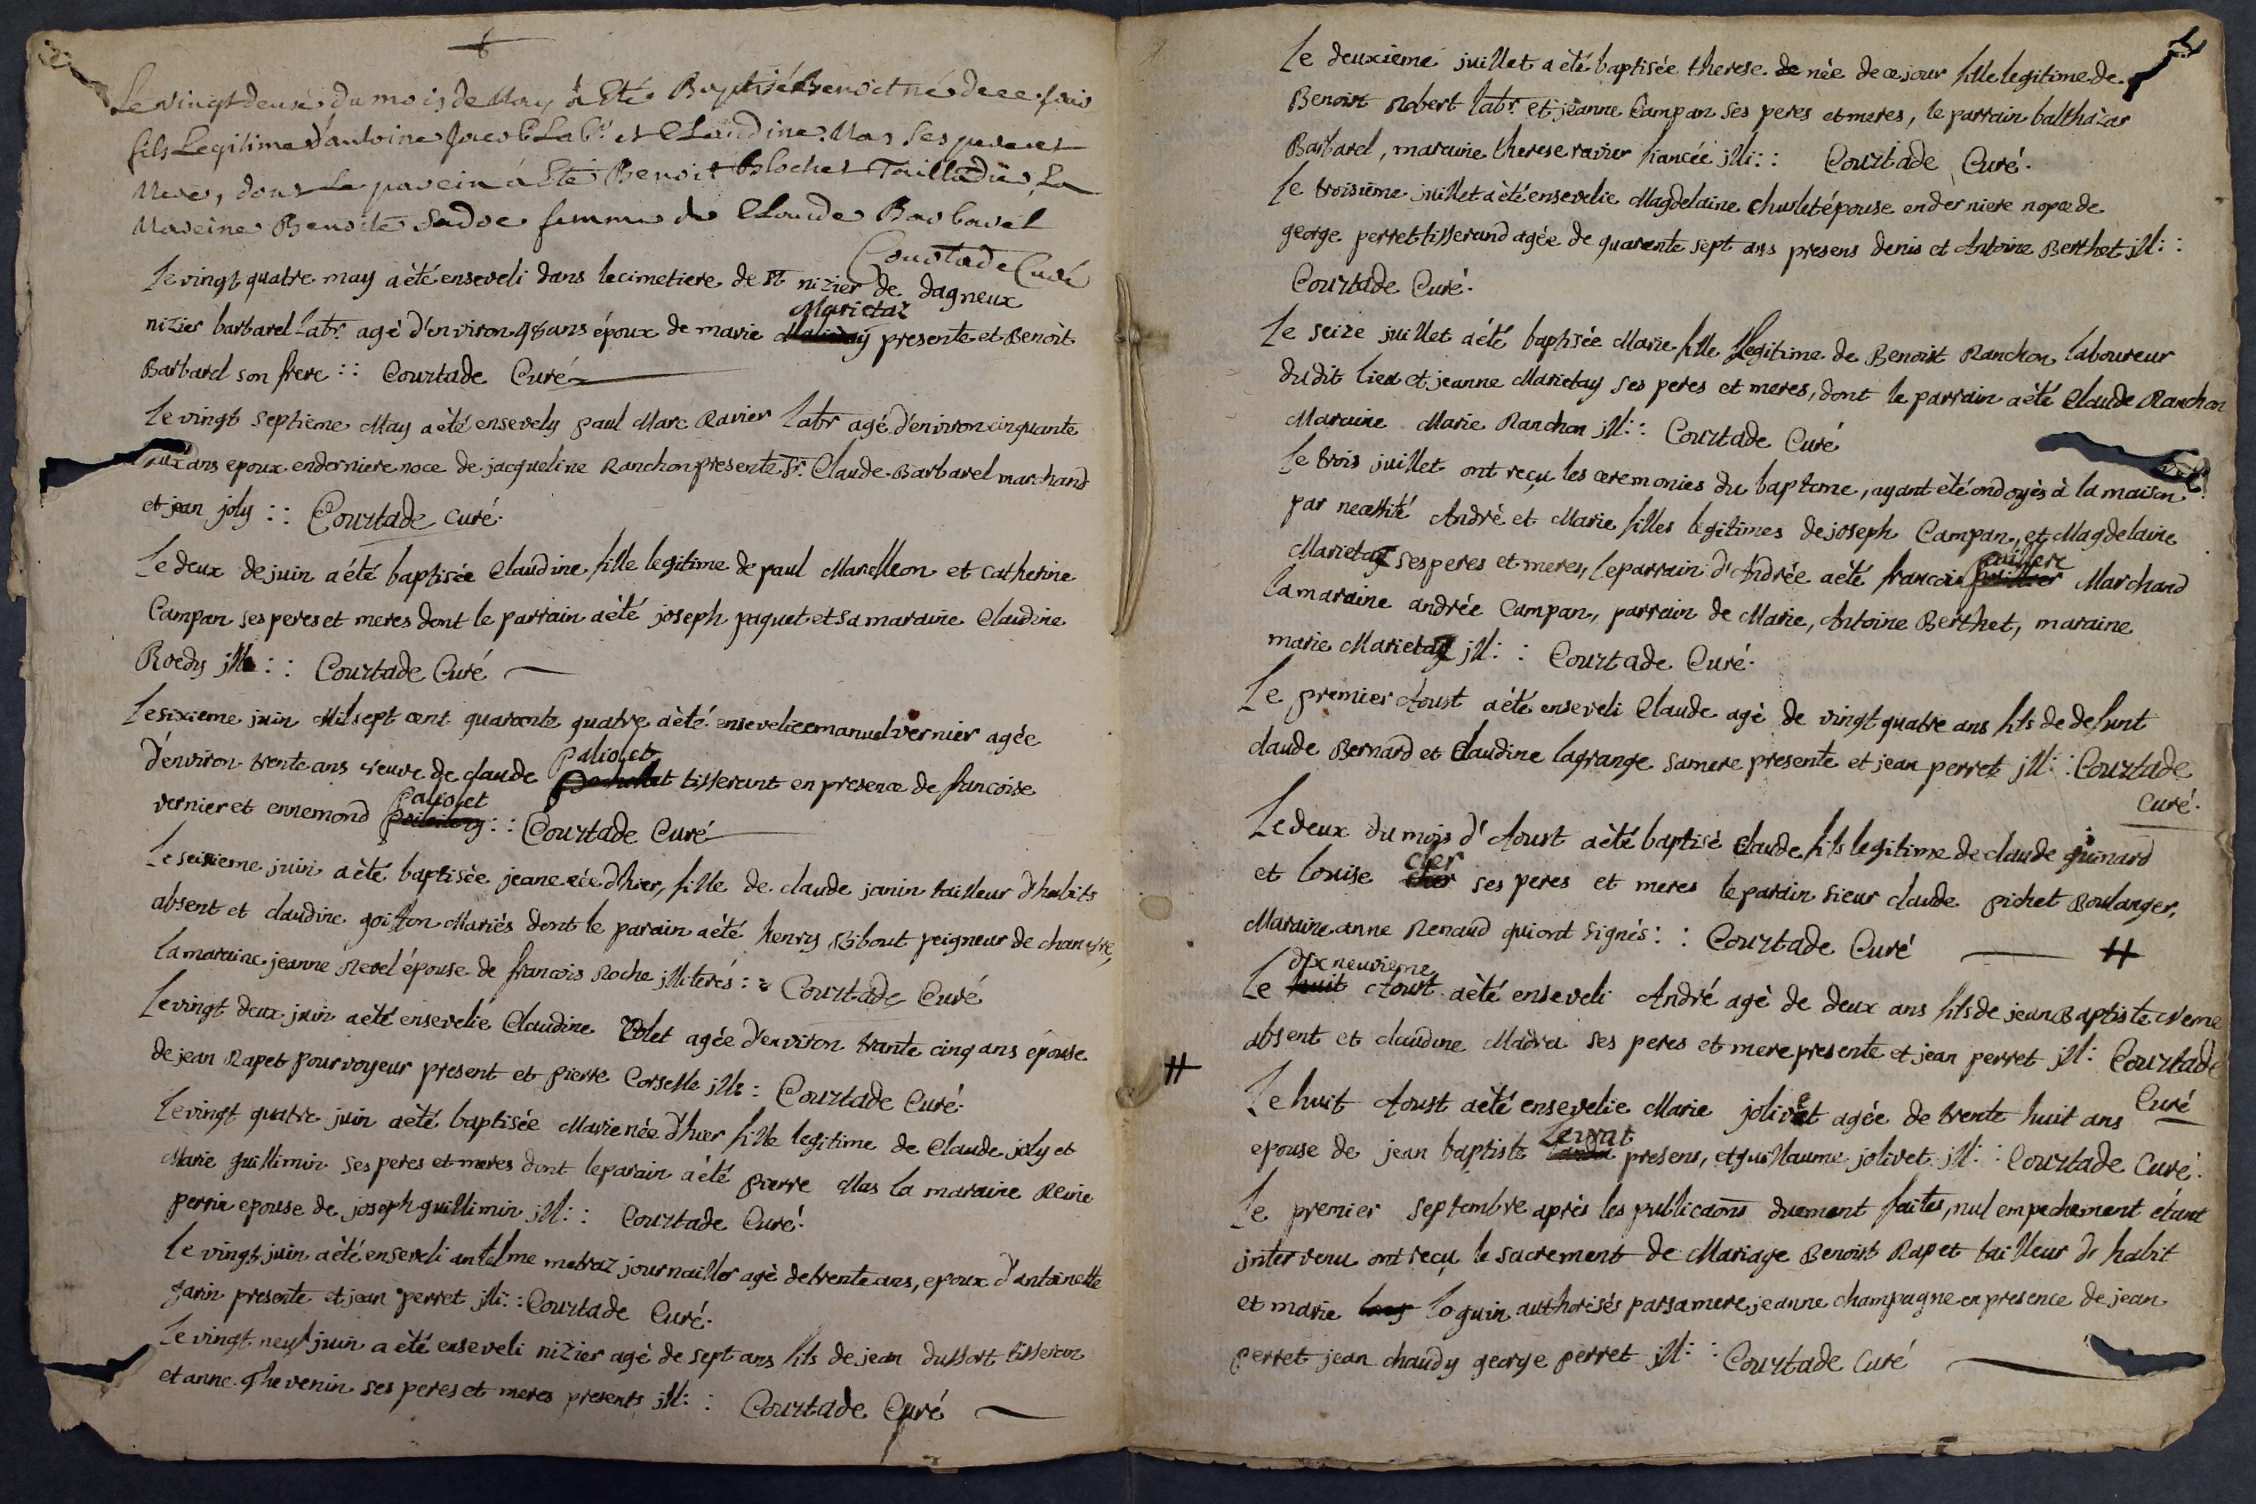 6
Le vingt deusé du mois de May à Eté Baptisé Benoist né de ce jour
fils Legitime d'antoine Jacob Labr. et Claudine Mas Ses peres et
Mere, dont Le parein à Eté Benoist Tailladie, La
Mareine Benoite femme de Claude Barbarel
Courtade Curé
Le vingt quatre may a été enseveli dans le cimetiere de st nizier de dagneux
Marietaz
nizier barbarel labr. agé d'environ 48 ans époux de marie presente et Benoit
Barbarel son frere :: Courtade Curé
Le vingt septieme May a été ensevely paul Marc Ravier labr agé d'environ cinquante
deux ans epoux en derniere noce de jacqueline Ranchon presente Sr. Claude Barbarel marchand
et jean joly :: Courtade curé.
Le deux de juin a été baptisée Claudine fille legitime de paul Marc Meon et Catherine
Campan ses peres et meres dont le parrain a été joseph paquet et sa maraine Claudine
Roedy jll :: Courtade Curé
Le sixieme juin Mil sept cent quarente quatre a été ensevelie emanuel vernier agée
paliolet
d'environ trente ans veuve de claude tisserant en presence de francoise
paliolet
vernier et ennemond :: Courtade Curé
Le seisieme juin a été baptisée jeane née d'hier, fille de claude janin tailleur d'habits
absent et claudine goiffon Mariés dont le parain a été henry Ribout peigneur de chanvre,
la maraine jeanne Revel épouse de francois Roche jlliterés :: Courtade Curé
Le vingt deux juin a été ensevelie Claudine Volet agée d'environ trante cinq ans epouse
de jean Rapet pourvoyeur present et pierre Corselle jlls : Courtade Curé.
Le vingt quatre juin a été baptisée Marie née d'hier fille legitime de Claude joly et
Marie guillimin ses peres et meres dont le parain a été pierre Mas la maraine Reine
perrin epouse de joseph guillimin jll :: Courtade Curé.
Le vingt juin a été enseveli antelme metraz journaillier agé de trente ans, epoux d'antoinette
garin presente et jean perret jll :: Courtade Curé.
Le vingt neuf juin a été enseveli nizier agé de sept ans fils de jean dussort tisseran
et anne thevenin ses peres et meres presents jll :: Courtade Curé
Le deuxieme juillet a été baptisée therese de née de ce jour fille legitime de
Benoist Robert labr. et jeanne Campan ses peres et meres, le parrain balthazar
Barbarel, maraine therese ravier fiancée jll :: Courtade Curé.
Le troisieme juillet a été ensevelie Magdelaine Churlet épouse en derniere nopce de
george perret tisserand agée de quarente sept ans presens denis et Antoine Berthet jll ::
Courtade Curé.
Le seize juillet a été baptisée Marie fille Legitime de Benoist Ranchon laboureur
dudit lieu et jeanne Marietay ses peres et meres, dont le parrain a été Claude Ranchon
Maraine Marie Ranchon jll :: Courtade Curé
Le trois juillet ont reçu les ceremonies du bapteme, ayant été ondoyés à la maison
par necessité André et Marie filles legitimes de joseph Campan, et Magdelaine
paillere
Marietaz ses peres et meres, le parrain d'Andrée a été francois Marchand
la maraine andrée Campan, parrain de Marie, Antoine Berthet, maraine
marie Marietaz jll :: Courtade Curé.
Le premier Aoust a été enseveli Claude agé de vingt quatre ans fils de defunt
claude Bernard et Claudine lagrange sa mere presente et jean perret jll :: Courtade
Curé.
Le deux du mois d'Aoust a été baptisé Claude fils legitime de claude guinard
cler
et louise cler ses peres et meres le parain sieur claude pichet Boulanger,
Maraine anne Renaud qui ont signés :: Courtade Curé #
dix neuvieme
Le huit Aoust a été enseveli André agé de deux ans fils de jean Baptiste
absent et claudine Madra ses peres et mere presente et jean perret jll : Courtade
Curé
# Le huit Aoust a été ensevelie Marie jolivet agée de trente huit ans
Levrat
epouse de jean baptiste presens, et guillaume jolivet jll :: Courtade Curé.
Le premier septembre après les publicaons duement faites, nul empechement étant
intervenu ont reçu le sacrement de Mariage Benoist Rapet tailleur d'habit
et marie loguin authorisés par sa mere jeanne champagne en presence de jean
perret jean chaudy george perret jll :: Courtade Curé